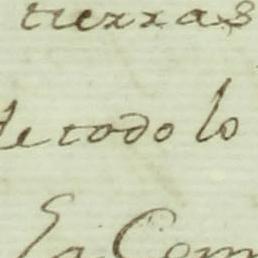 tierras
de todo lo
La Com